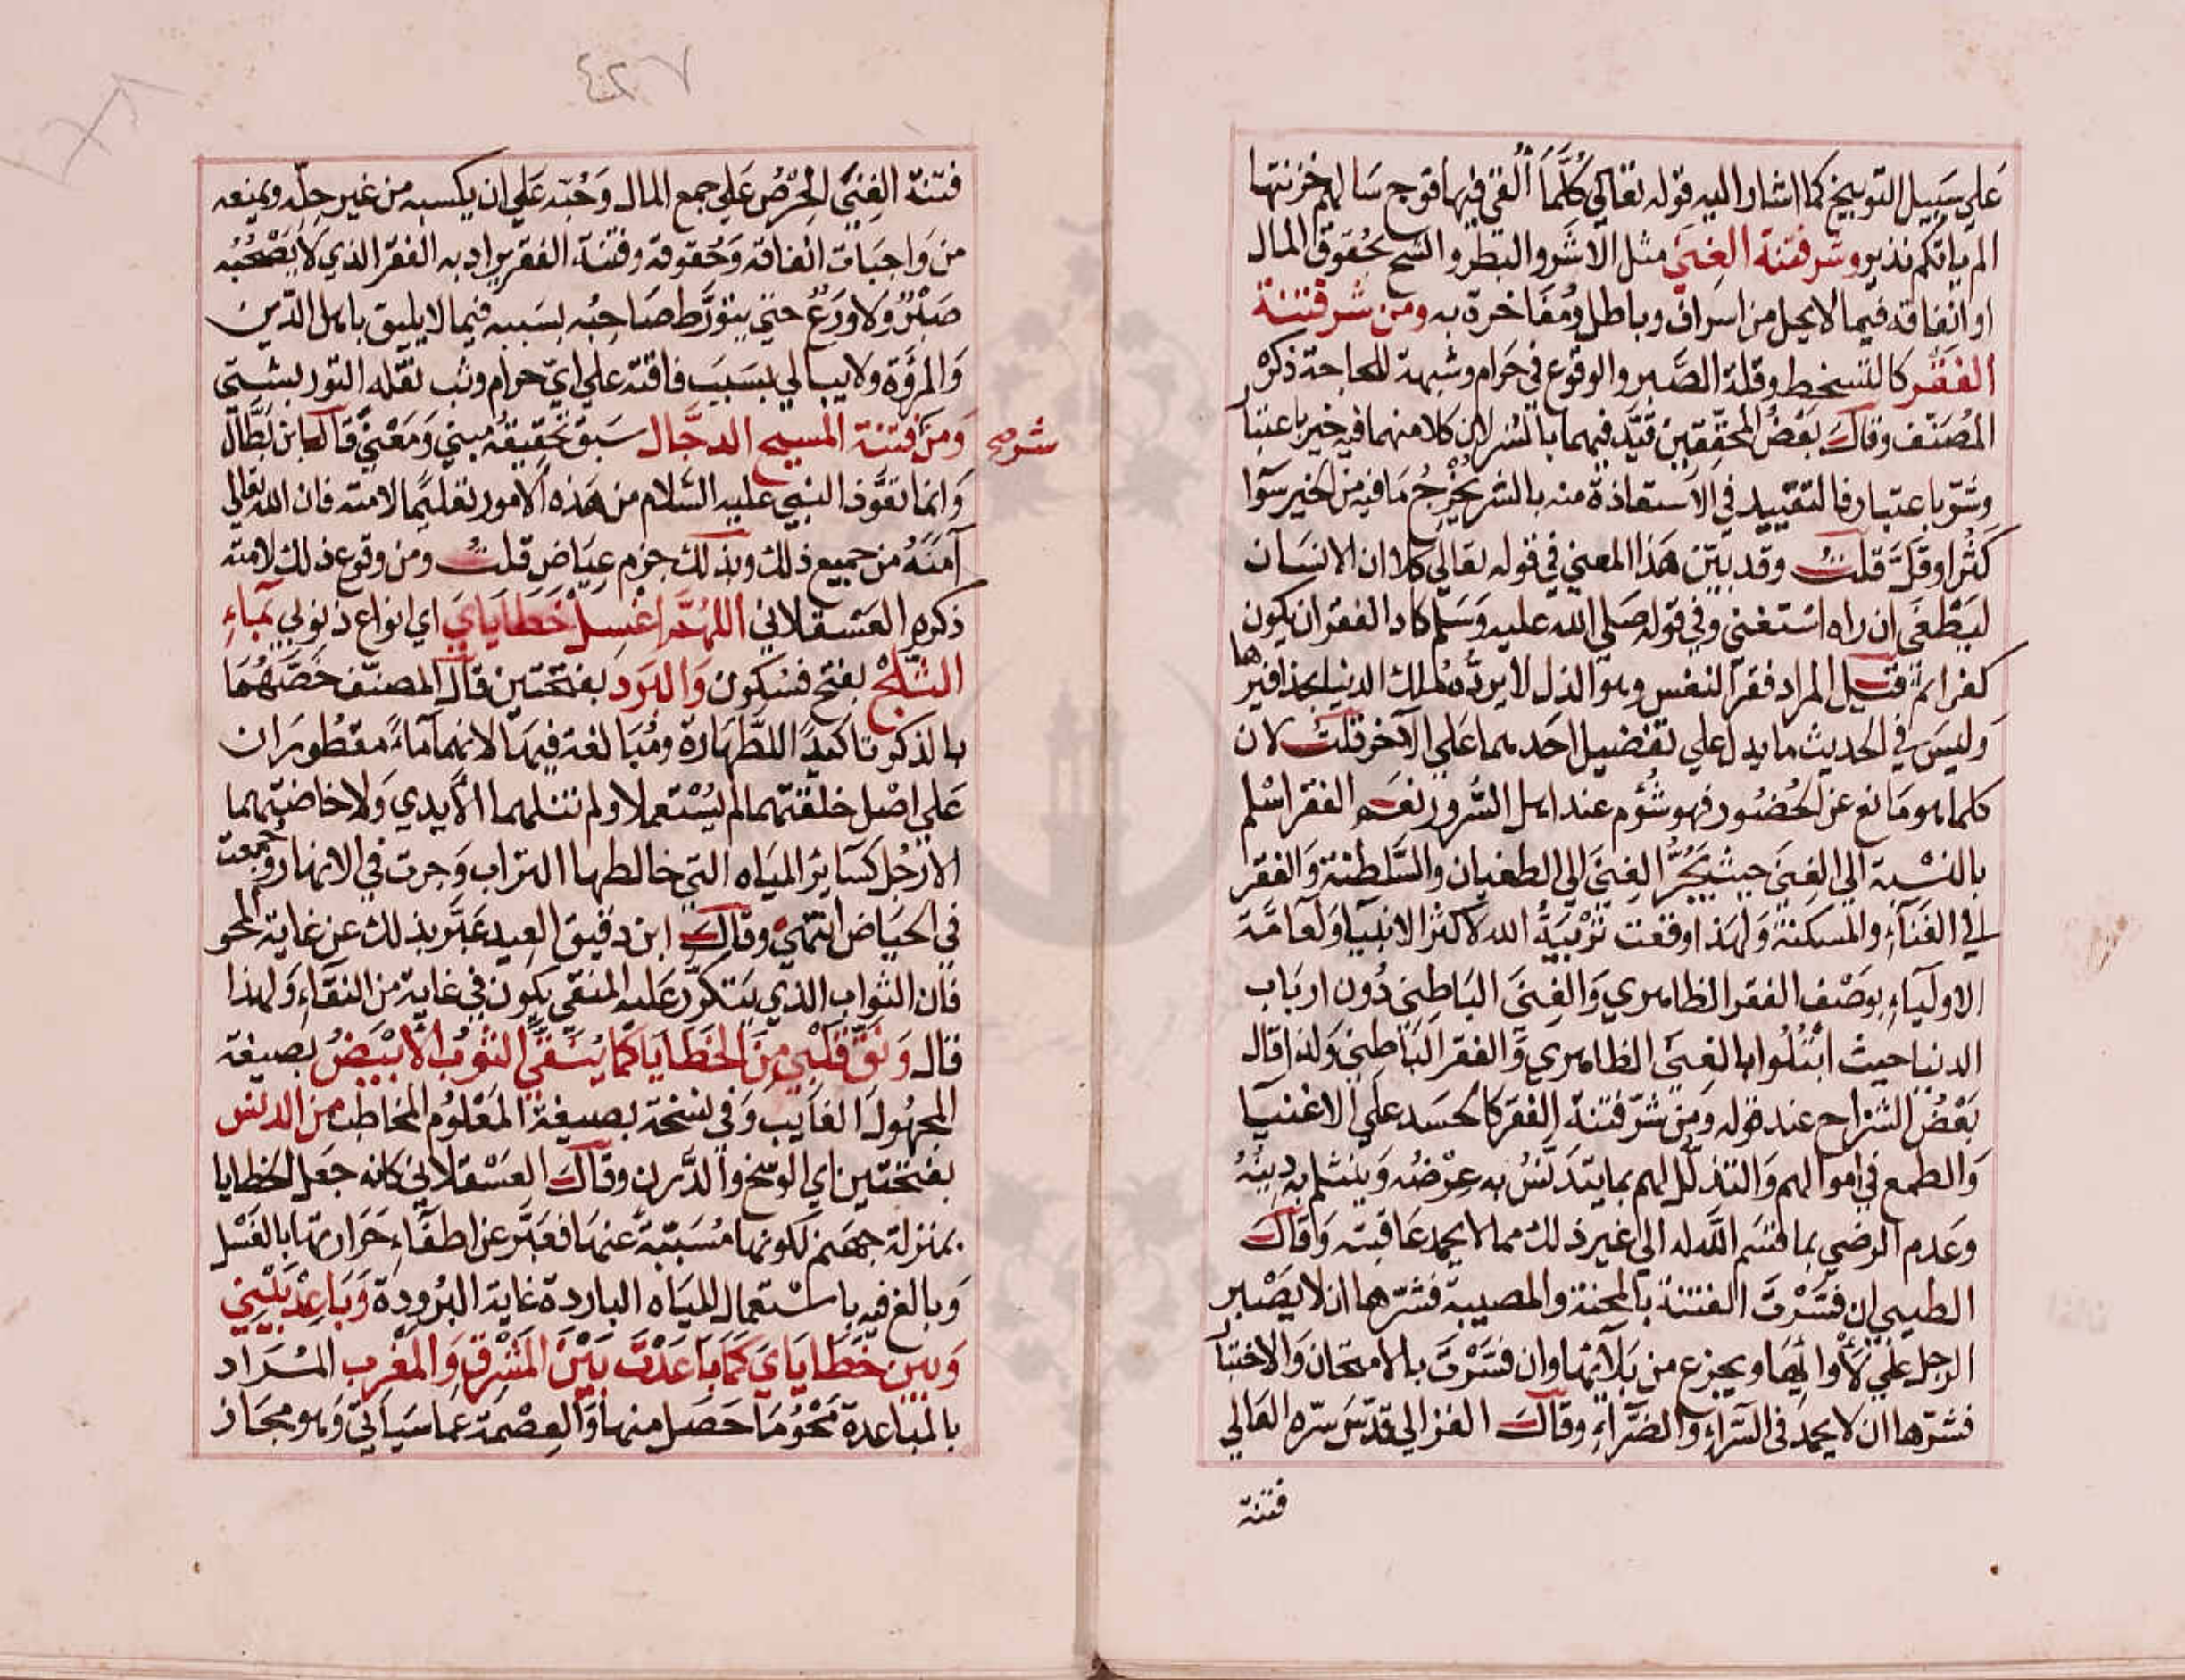 عَلي سَبيل التوبيخ كما اشار اليه قوله تعالي كُلَّمَا أُلْقي فيها فوج سَالهم خزنتها
الم ياتكم نذير وشر فتنة الغِنَي مثل الاشَر والبَطَر والشح بحُقوق المال
او انفاقه فيما لا يحل من اسراف وباطل ومُفَاخرة به ومن شر فتنة
الفقر كالتسخط وقلة الصَّبر والوقوع في حرام وشبهة للحاجة ذكرَهُ
المُصَنّف وقالَ بَعْضُ المحَقّقين قَيَّد فيهما بالشر لان كلا منهما فيه خير باعتبار
وشَرّ باعتبار فالتقييد في الاستعاذة منه بالشر يُخْرِجُ مَا فيه من الخير سَوآ
كَثُرَ اوقَلَّ قلتُ وقد بيّن هَذا المعني في قوله تعالي كلا ان الانسَان
ليَطْغَي ان راه اسْتغني وفي قوله صَلي الله عليه وَسَلم كاد الفقر ان يكون
كفرا ثمَّ قيل المراد فقر النفس وهو الذل لا يردُّهُ مُلك الدنيا بحذافيرها
وَليسَ في الحديث ما يدل علي تفضيل احَدهما عَلي الآخر قلتُ لان
كلما هو مَانع عن الحُضُور فهو شُؤم عند اهل السُّرور نعم الفقر اسْلم
بالنسْبة الي الغِنَي حيث يَجُرُّ الغِنَي الي الطغيان والسَّلطنة وَالفقر
الي الفَنَآءِ والمسكنة وَلهَذا وقعت تَرْبيَةُ الله لاكثر الانبيآ وَلعَامَّة
الاوليَآءِ بوَصْف الفقر الظاهري وَالغِنَي البَاطِني دُون اربَاب
الدنيا حيث ابْتُلُوا بالغِنَي الظاهري وَالفقر البَاطِني وَلذا قال
بَعْضُ الشرّاح عند قوله وَمن شَرّ فتنة الفقر كالحسَد عَلي الاغنيآ
وَالطمع في اموالهم وَالتذلّل لهم بما يتدَنَّسُ به عِرْضُه وَيَنثَلم به دِينُهُ
وَعَدم الرضي بما قسَم اللَّه له الي غير ذلك مما لا يحمد عَاقبته وَاقالَ
الطيبي ان فسّرْتَ الفتنة بالمحنة والمصيبة فشرّها ان لا يَصْبر
الرجل عَلي لأوائِهَا ويجزع من بَلَآئها وان فسَّرْتَ بالامتحان وَالاختبار
فشرّها ان لا يحمد في السَّرآءِ وَالضَرَّآءِ وقالَ الغزالي قدّسَ سرّه العَالي
فتنة
٤٢٧
فتنة الغِنَي الحِرْصُ عَلي جمع المال وَحُبّه عَلي ان يكسبه من غير حِلّه ويمنعه
من وَاجبَات انفاقه وَحُقوقه وفتنة الفقر يراد به الفقر الذي لا يَصْحَبُه
صَبْرٌ وَلا وَرَعٌ حتي يتورَّط صَاحِبُه بسَببه فيما لا يليق باهل الدّين
وَالمرُوَّة ولا يبالي بسَبَبَ فاقته علي ايّ حرام وثب نقله التوربشتي
وَمن فتنة المَسيح الدجَّال سَبق تحقيقهُ مبني وَمَعْنيً قال ابن بَطَّال
شرح
وَانما تعَوَّذ النبي عليه السَّلام من هَذه الامور تعليمًا لامته فان الله تعالي
آمنَهُ من جميع ذلك وبذلك جزم عِيَاض قلتُ ومن وقوع ذلك لامته
ذكره العَسْقلاني اللهُمَّ اغسِلْ خَطَايَايَ اي انواع ذنوبي بمآءِ
الثلجْ بفتح فسُكون وَالبَرَد بفتحتين قال المصنّف خَصَّهُمَا
بالذكر تاكيدًا للطَّهَارة ومُبَالغة فيهَا لانهما مآءان مفطورَان
عَلي اصْل خلقتهما لم يُسْتعملا ولم تنلهما الايدي وَلا خاضتهما
الارْجُل كسَائِر الميَاه التي خالطها التراب وَجرت في الانهار وجُمعَت
في الحيَاض انتهيٰ وقالَ ابن دقيق العِيد عَبَّر بذلك عن غاية المحو
فان الثواب الذي يَتكرّر عليه المنقي يكون في غاية من النقآءِ وَلهذا
قال وَنَقِّ قَلْبي مِنَ الخَطَايَا كَمَا يُنَقَّي الثوْبُ الأبْيَضُ بصيغة
المجهُول الغَايب وَفي نسخة بصيغة المَعْلوم المخاطب من الدنس
بفتحتين اي الوسَخ والدَّرن وقالَ العَسْقلاني كانه جعَل الخطايا
بمنزلة جهَنم لكونها مُسَبّبة عَنهَا فعَبَّر عن اطفآءِ حَرارتها بالغَسْل
وَبالغ فيه باستعمال المياه الباردة غاية البُرودة وَبَاعِدْ بَيْني
وَبين خَطايَايَ كمَا بَاعَدْتَ بَيْنَ المَشْرِقِ وَالمَغْرِبِ المُرَاد
بالمبَاعدة مَحْوُ مَا حَصَل منهَا وَالعِصْمَة عما سَيَاتي وَهو مجَاز